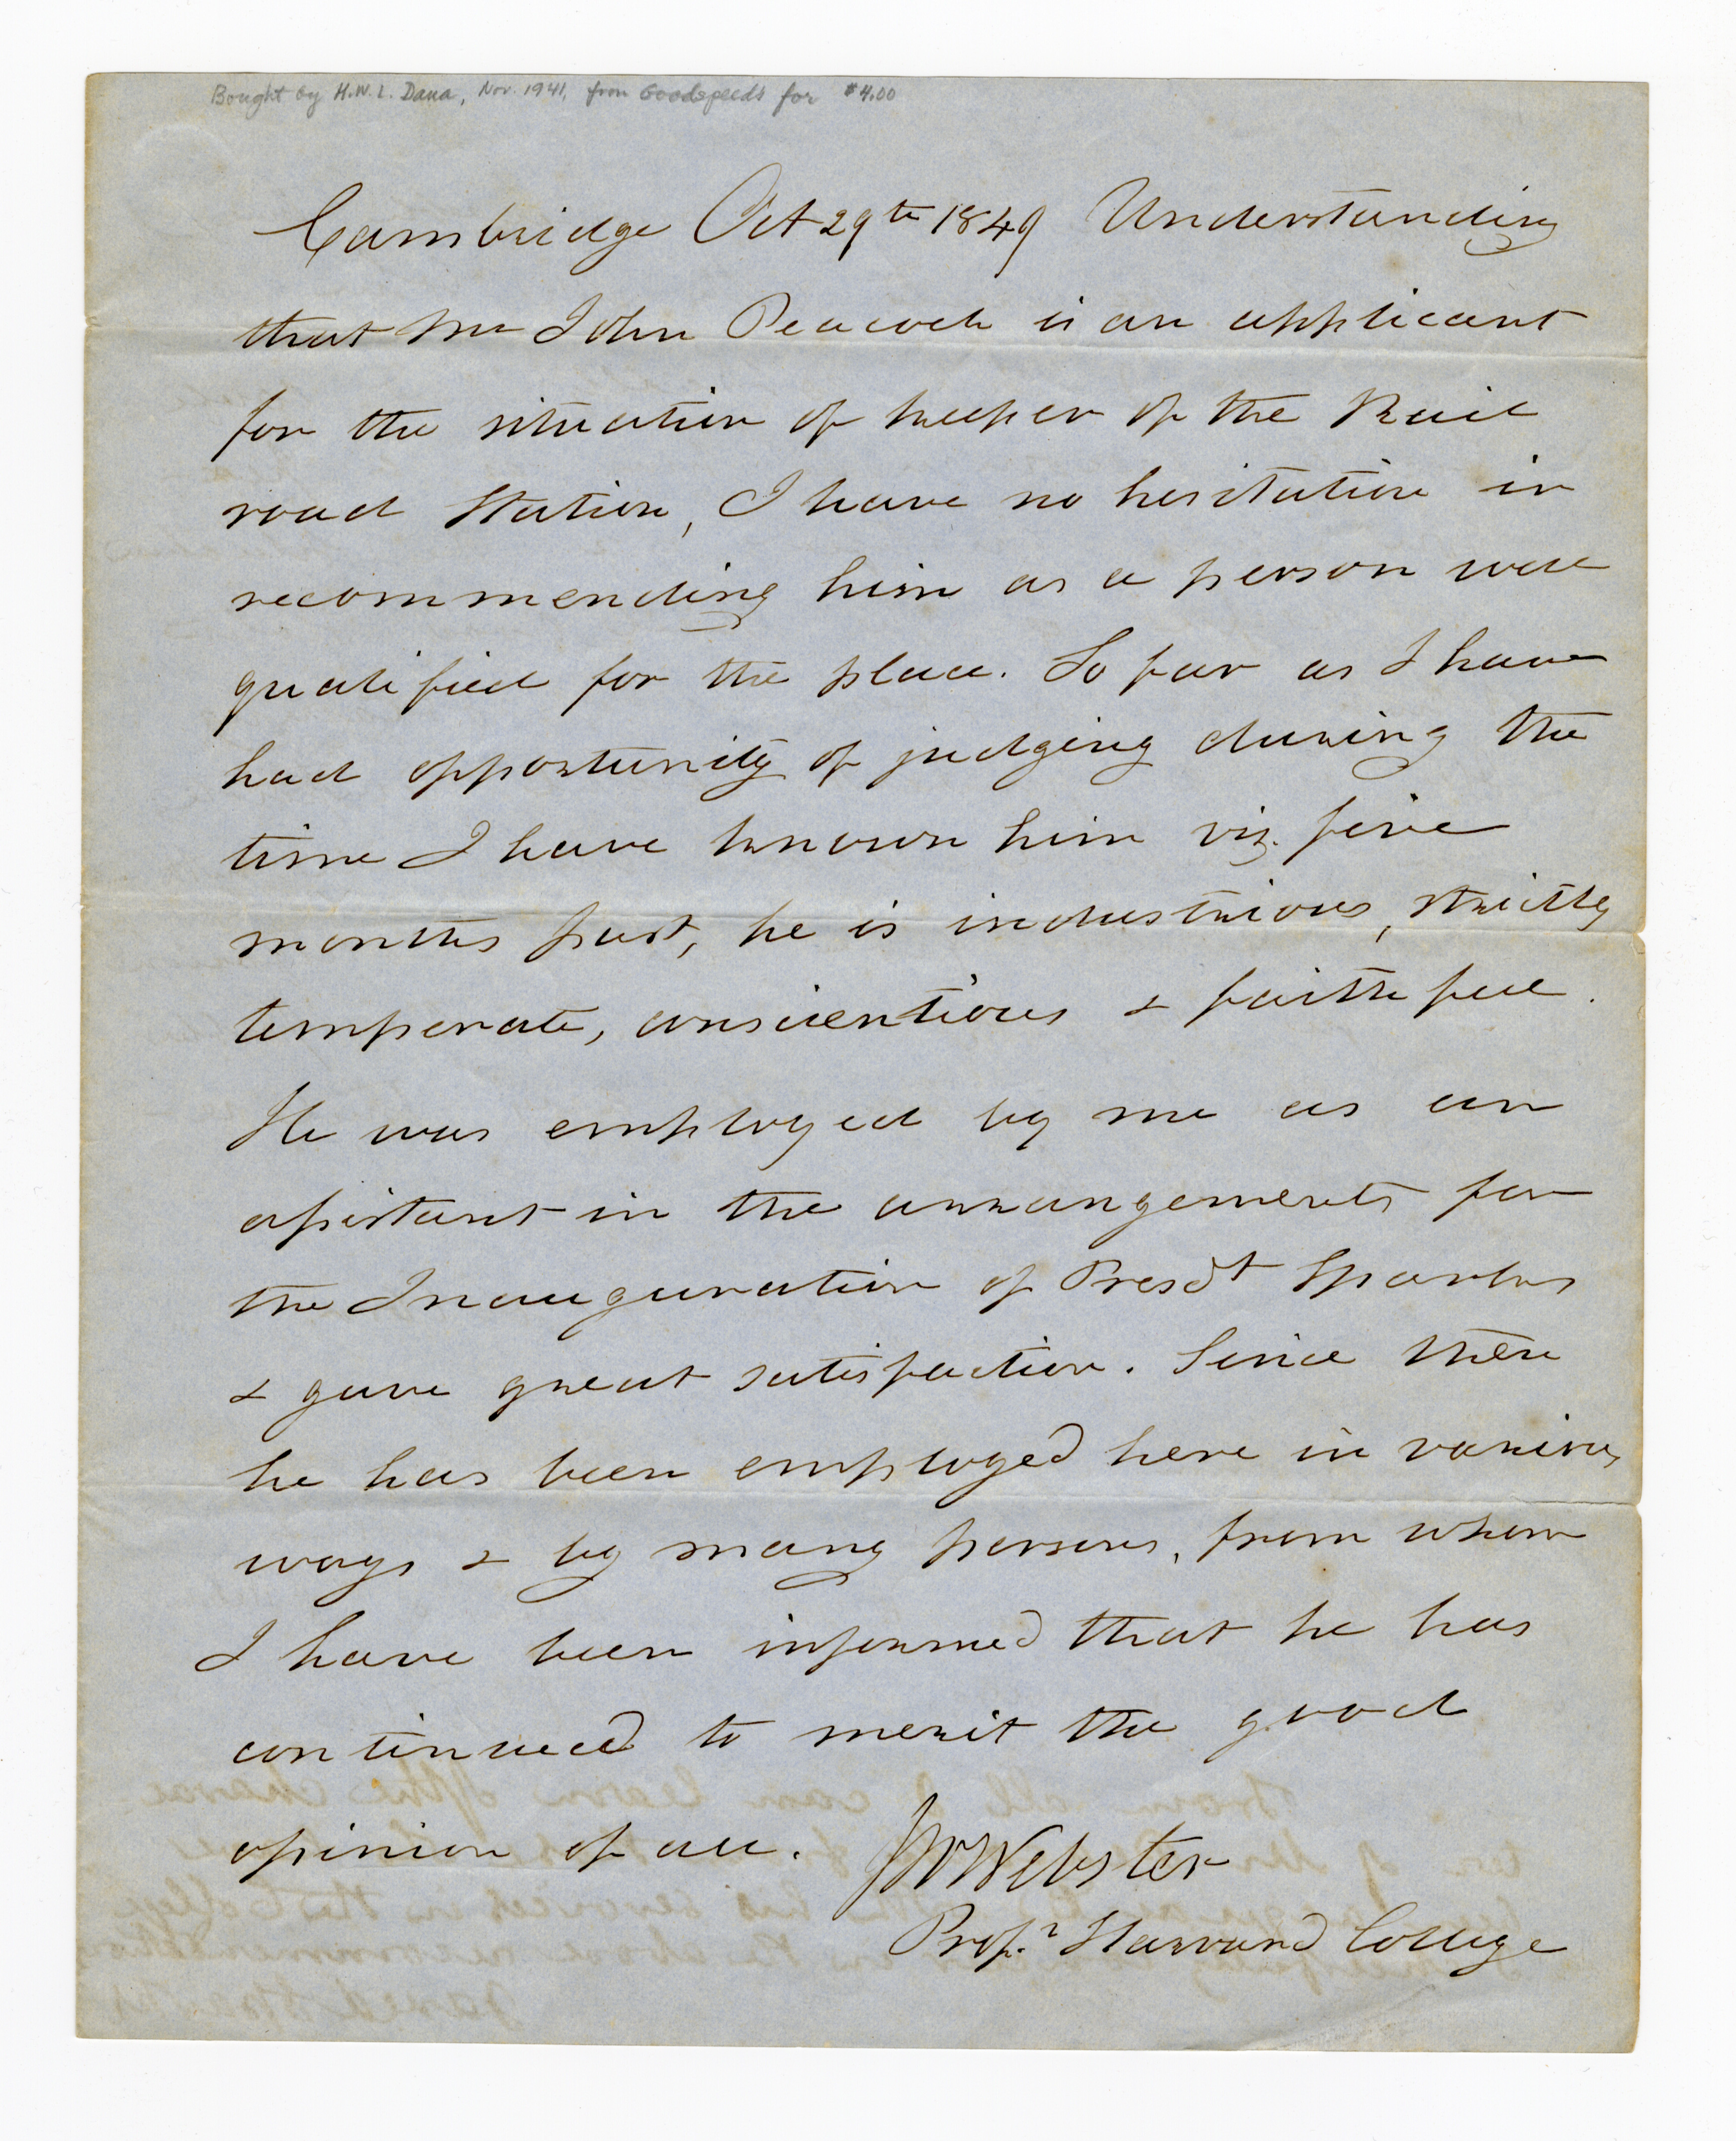 Bought by H.W.L. Dana, Nov. 1941, from Goodspeeds for $4.00
Cambridge Oct 29th 1849 Understanding
that Mr John Peacock is an applicant
for the situation of keeper of the Rail
road Station, I have no hesitation in
recommending him as a person well
qualified for the place. So far as I have
had opportunity of judging during the
time I have known him viz. five
months past, he is industrious, strictly
temperate, conscientious & faithful.
He was employed by me as an
assistant in the arrangements for
the Inauguration of Presdt Sparks
& gave great satisfaction. Since then
he has been employed here in various
ways & by many persons, from whom
I have been informed that he has
continued to merit the good
opinion of all. JW Webster
Profr. Harvard College